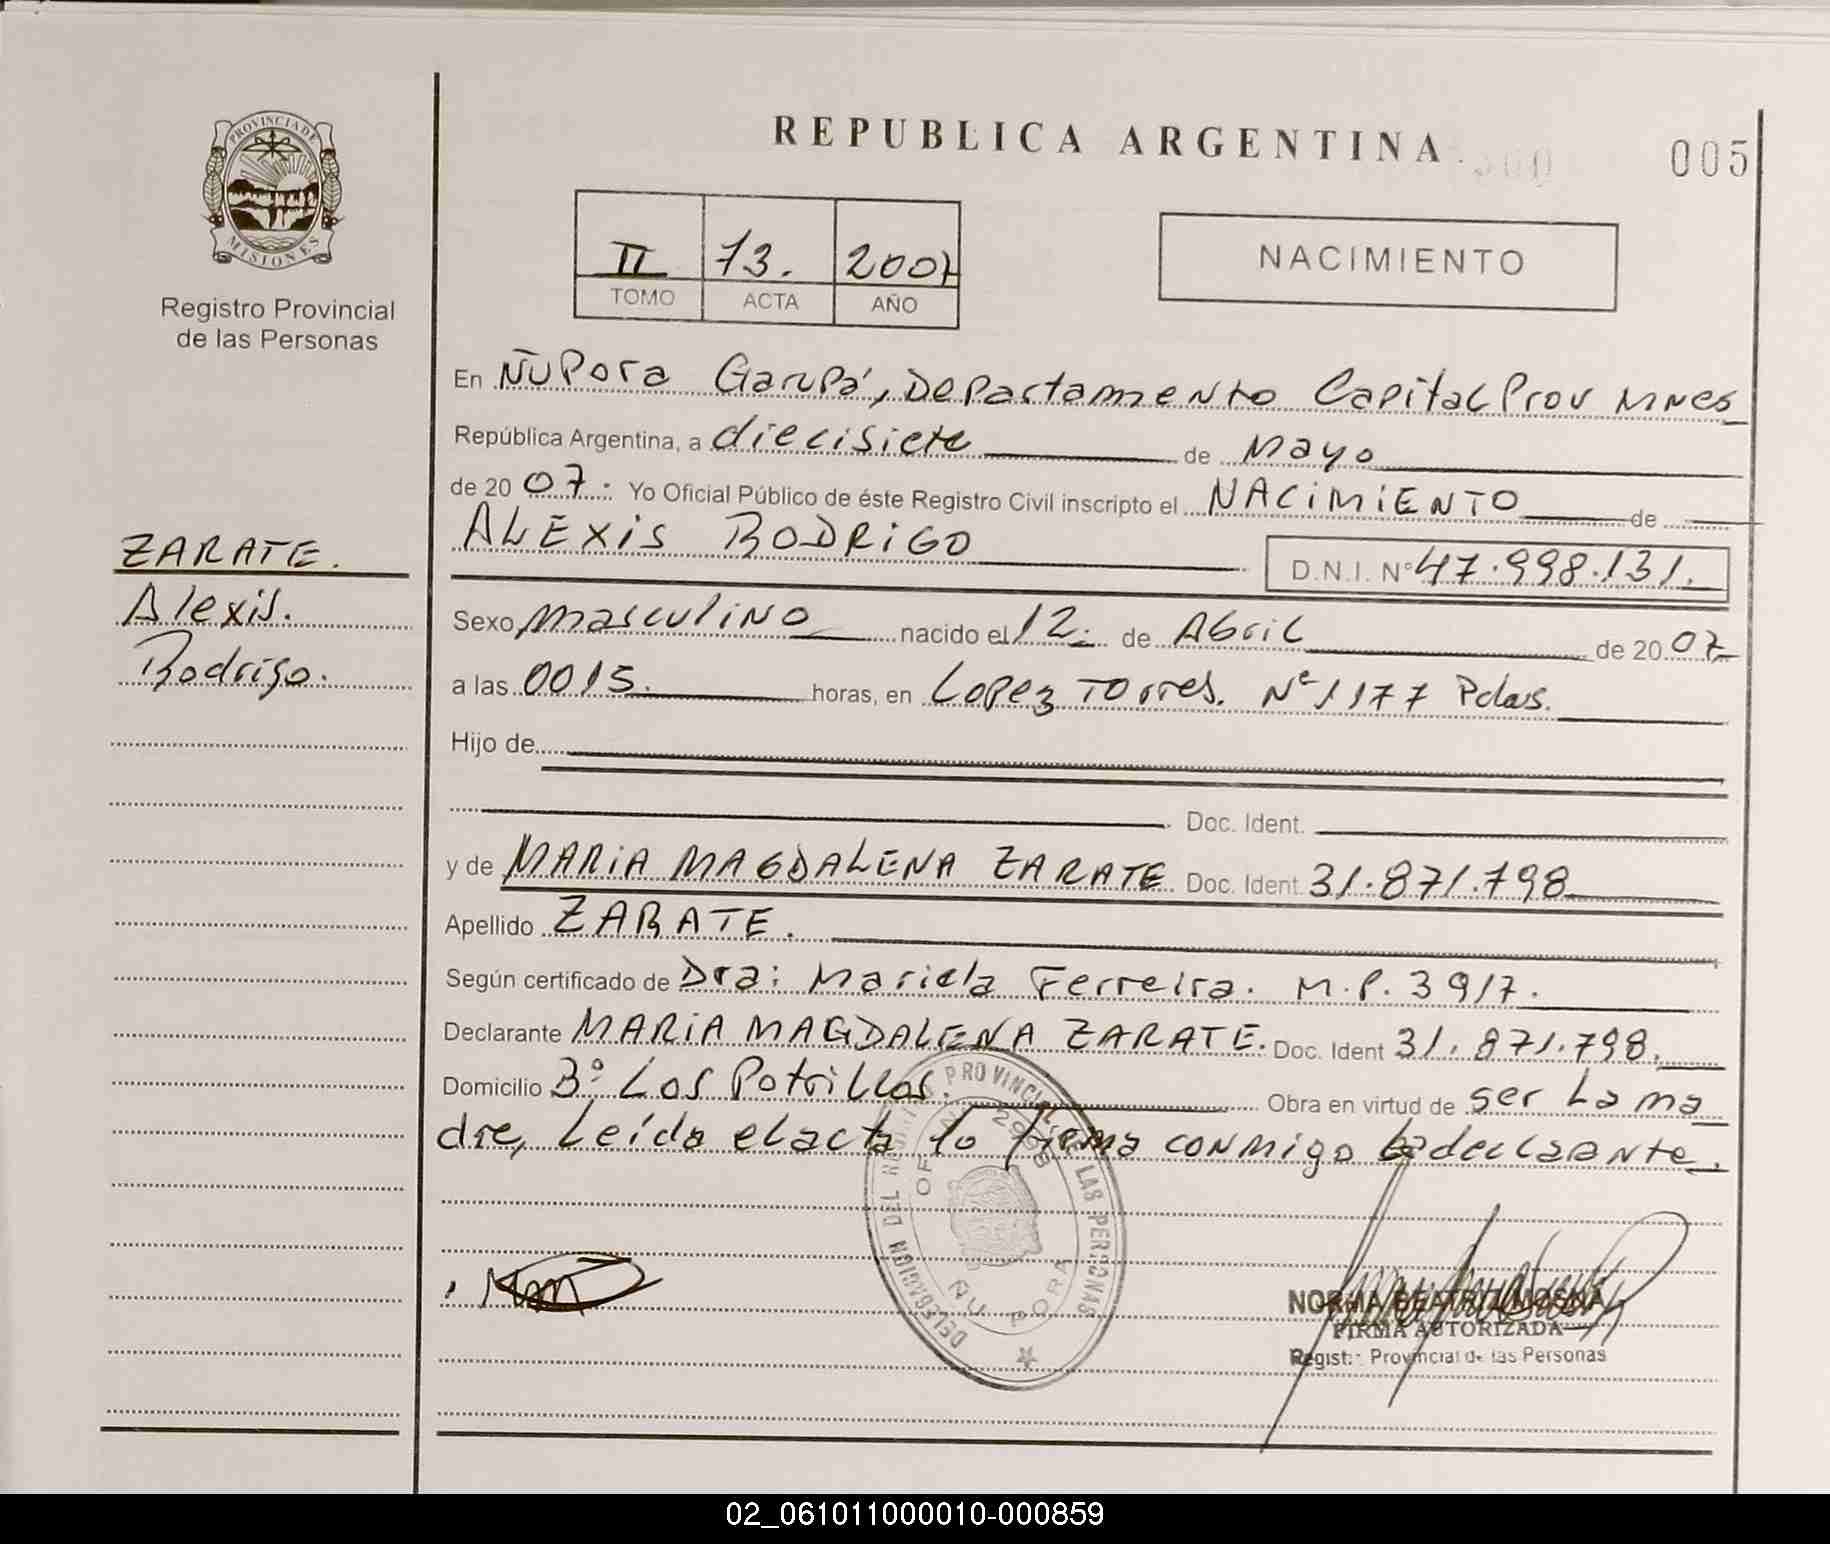 REPUBLICA ARGENTINA
005
PROVINCIA DE
MISIONES
Registro Provincial
de las Personas
II 13. 2007
TOMO ACTA AÑO
NACIMIENTO
En ÑuPora Garupá, Departamento Capital Prov Mnes
República Argentina, a diecisiete de Mayo
de 2007. Yo Oficial Público de éste Registro Civil inscripto el NACIMIENTO de
ALEXIS RODRIGO D.N.I. Nº 47.998.131.
ZARATE.
Alexis.
Rodrigo.
Sexo Masculino nacido el 12. de Abril de 2007
a las 0015. horas, en Lopez Torres. Nº 1177 Pdas.
Hijo de
Doc. Ident.
y de MARIA MAGDALENA ZARATE Doc. Ident. 31.871.798
Apellido ZARATE.
Según certificado de Dra: Mariela Ferreira. M.P. 3917.
Declarante MARIA MAGDALENA ZARATE. Doc. Ident 31.871.798.
Domicilio Bº Los Potrillos. Obra en virtud de ser La ma
dre, Leída el acta la firma conmigo la declarante.
DELEGACION DEL REGISTRO PROVINCIAL DE LAS PERSONAS
ÑU PORA
NORMA BEATRIZ MOSNA
FIRMA AUTORIZADA
Registro Provincial de las Personas
02_061011000010-000859